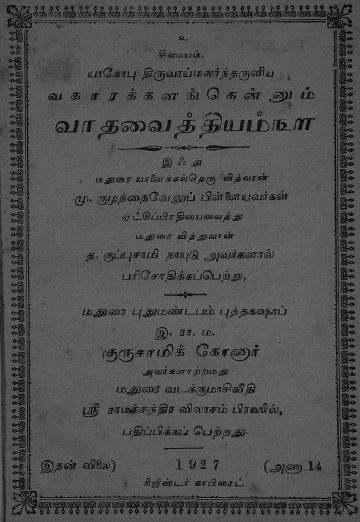 உ
சிவமயம்.
யாகோபு திருவாய்மலர்ந்தருளிய
வகாரக்களங்கென்னும்
வாதவைத்தியம்௩௱
இஃது
மதுரை யானைக்கல்தெரு வித்வான்
மு. குழந்தைவேலுப் பிள்ளையவர்கள்
ஏட்டுப்பிரதியைவைத்து
மதுரை வித்துவான்
த. குப்புசாமி நாயுடு அவர்களால்
பரிசோதிக்கப்பெற்று,
மதுரை புதுமண்டபம் புத்தகஷாப்
இ. ரா. ம.
குருசாமிக் கோனார்
அவர்களாற்றமது
மதுரை வடக்குமாசிவீதி
ஸ்ரீ ராமச்சந்திர விலாசம் பிரஸில்,
பதிப்பிக்கப் பெற்றது.
இதன் விலை) 1927 (அணா 14
ரிஜிஸ்டர் காபிரைட்